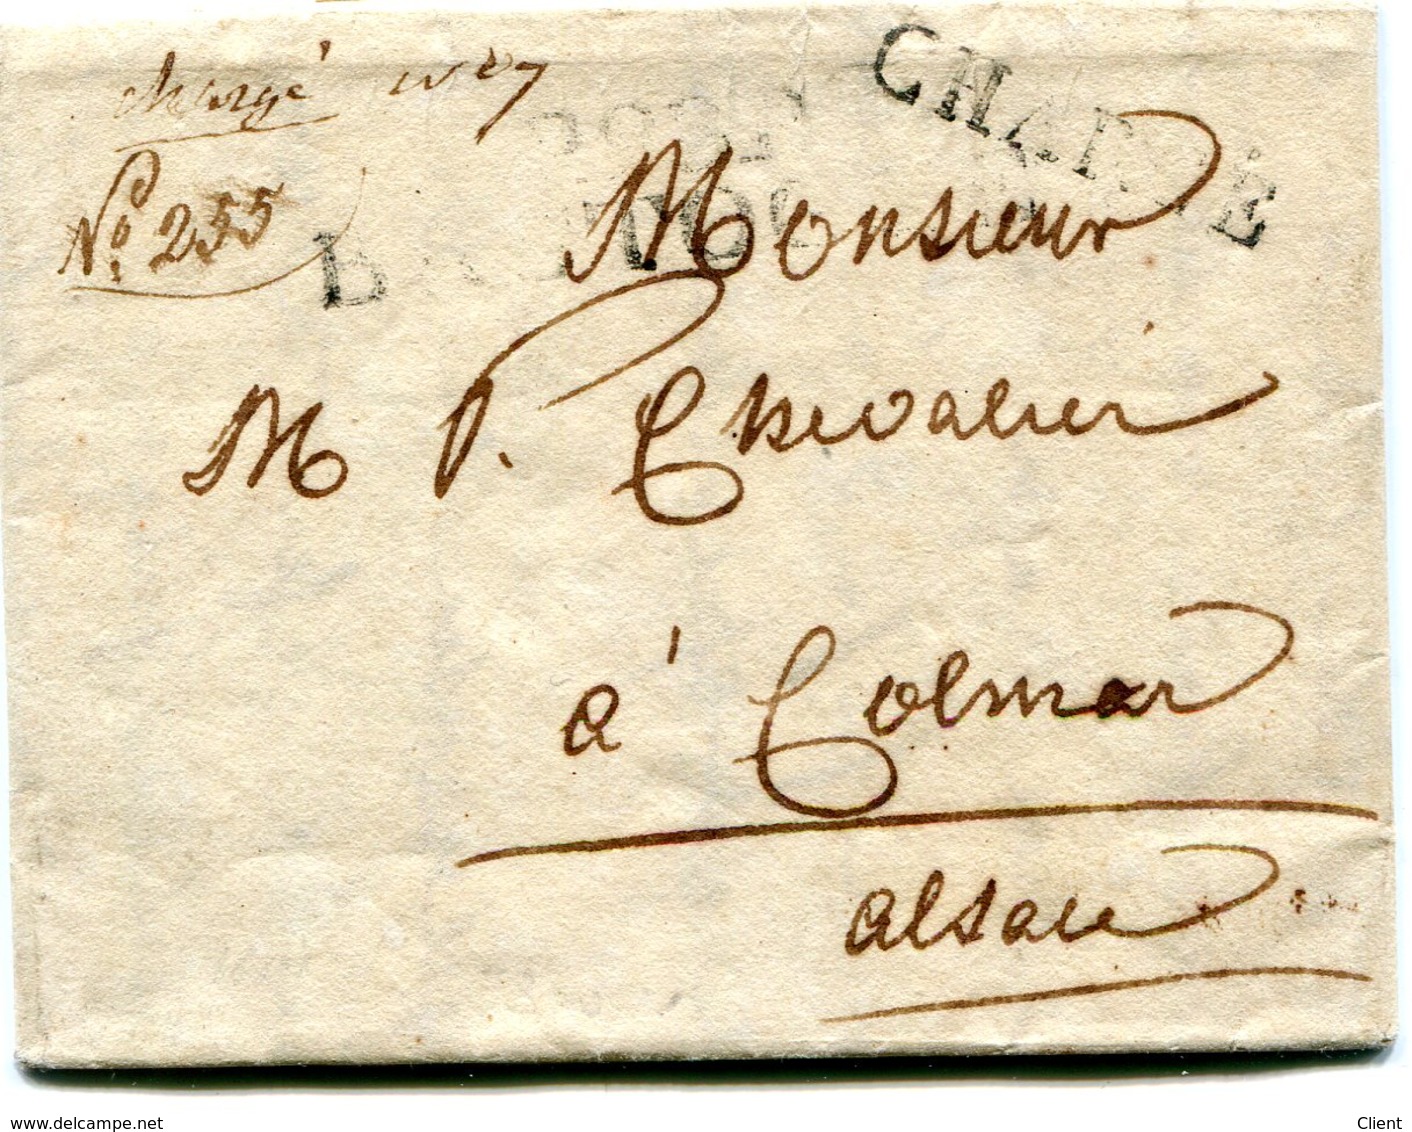 chargé n° 7
CHARGÉ
N°. 255
Monsieur
M P. Chevalier
à Colmar
alsace
www.delcampe.net
Client